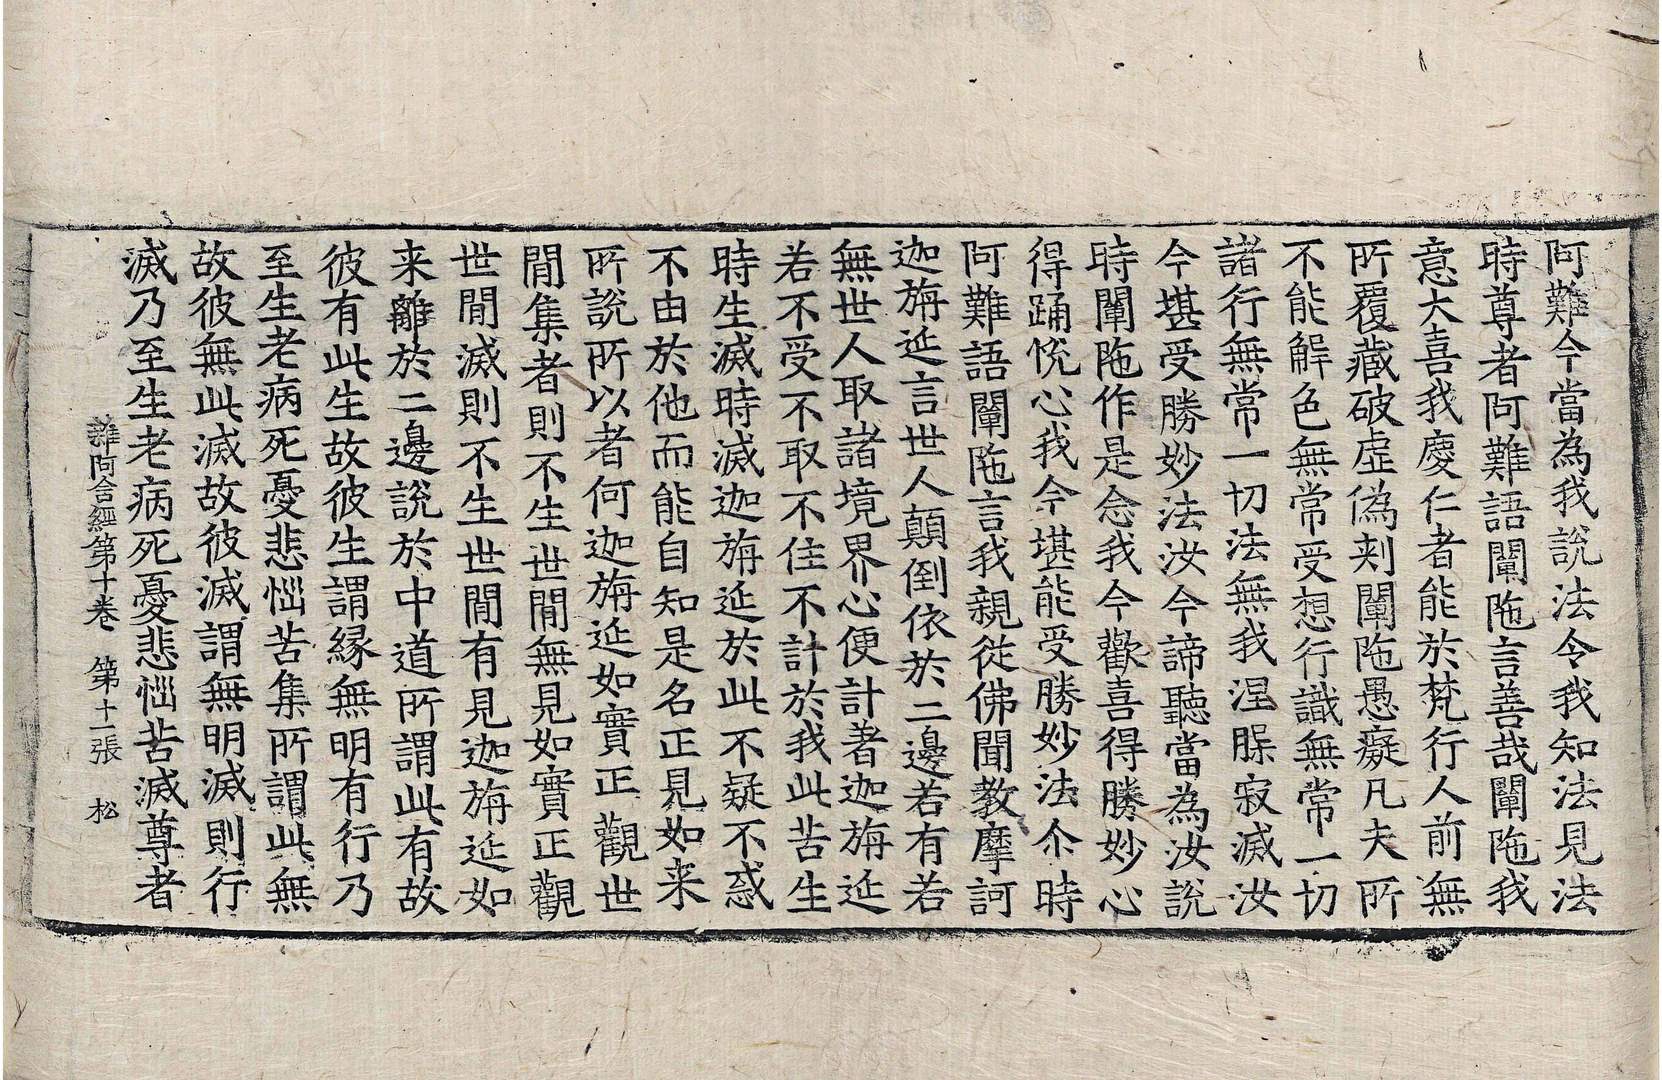 阿難今當為我說法令我知法見法
時尊者阿難語闡陁言善哉闡陁我
意大喜我慶仁者能於梵行人前無
所覆藏破虛偽刺闡陁愚癡凡夫所
不能解色無常受想行識無常一切
諸行無常一切法無我涅槃寂滅汝
今堪受勝妙法汝今諦聽當為汝說
時闡陁作是念我今歡喜得勝妙心
得踊恱心我今堪能受勝妙法尒時
阿難語闡陁言我親從佛聞教摩訶
迦旃延言世人顛倒依於二邊若有若
無世人取諸境界心便計著迦旃延
若不受不取不住不計於我此苦生
時生滅時滅迦旃延於此不疑不惑
不由於他而能自知是名正見如来
所說所以者何迦旃延如實正觀世
閒集者則不生世閒無見如實正觀
世閒滅則不生世閒有見迦旃延如
来離於二邊說於中道所謂此有故
彼有此生故彼生謂緣無明有行乃
至生老病死憂悲惱苦集所謂此無
故彼無此滅故彼滅謂無明滅則行
滅乃至生老病死憂悲惱苦滅尊者
雜阿含經第十卷 第十一張 松